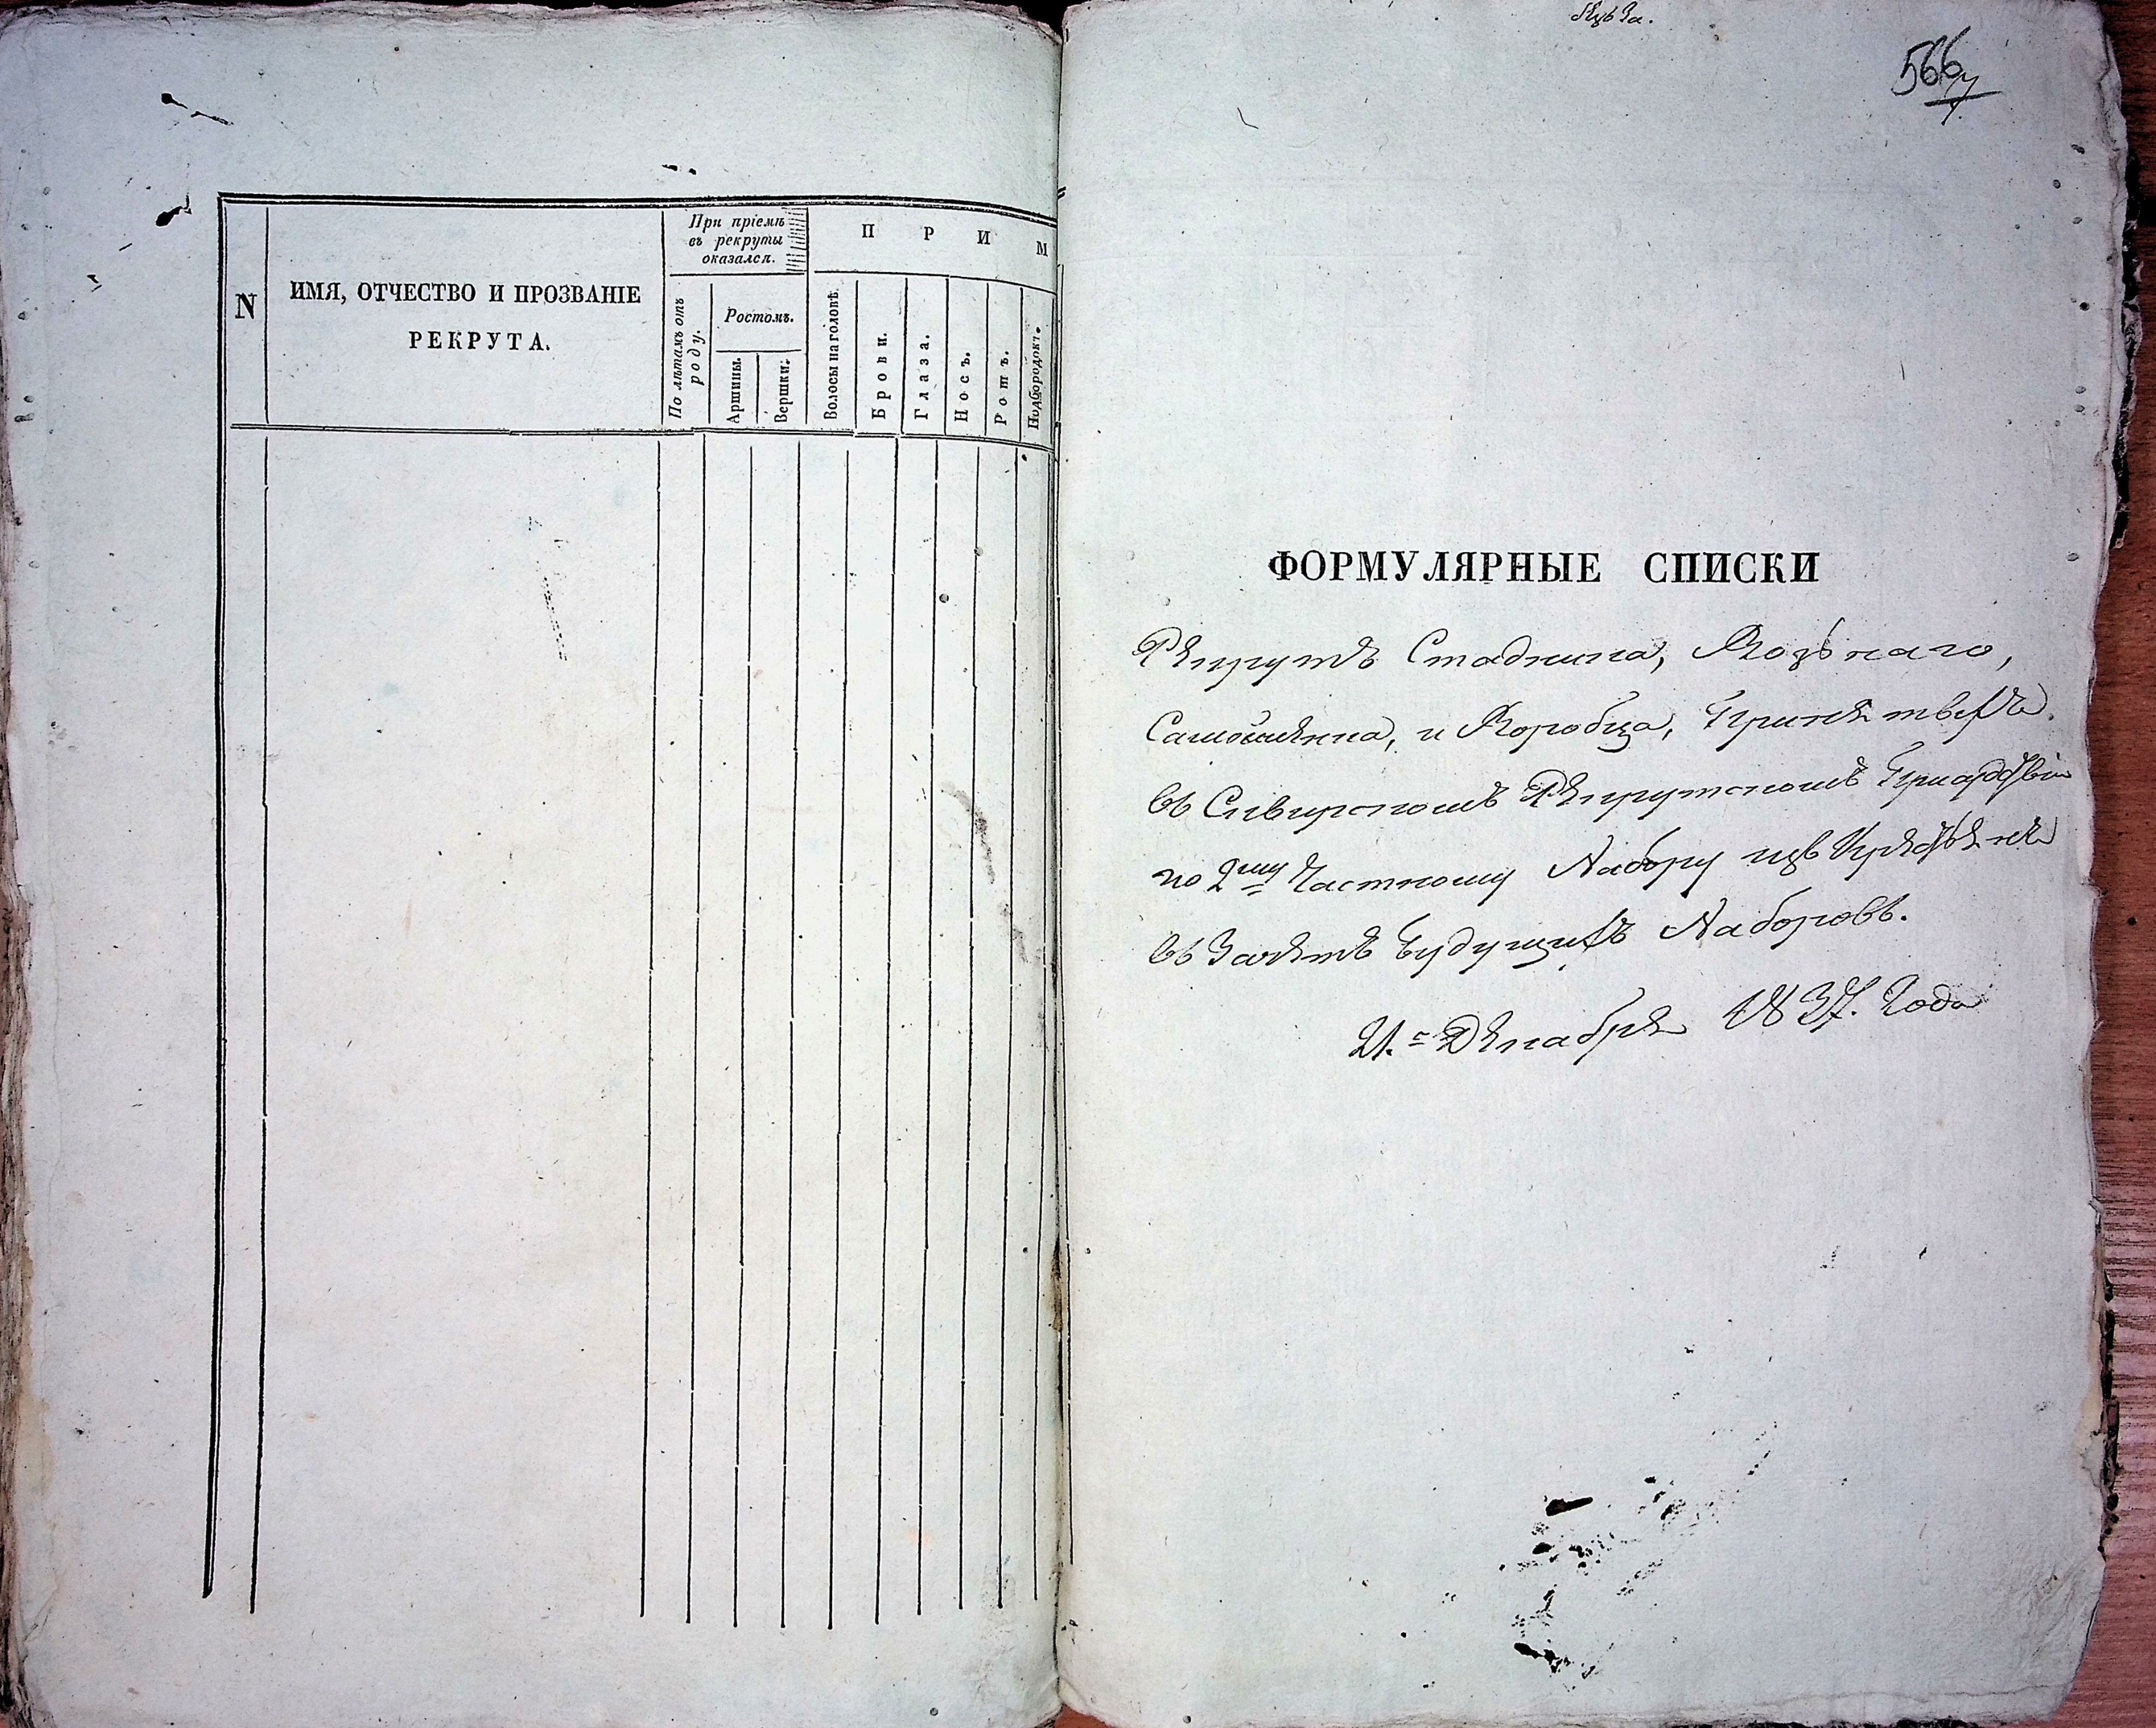 N
ИМЯ, ОТЧЕСТВО И ПРОЗВАНІЕ
РЕКРУТА.
При пріемѣ
въ рекруты
оказался.
По лѣтамъ отъ
роду.
Ростомъ.
Аршины.
Вершки.
П Р И М
Волосы на головѣ.
Брови.
Глаза.
Носъ.
Ротъ.
Подбородокъ.
566
ФОРМУЛЯРНЫЕ СПИСКИ
Рекрутъ Стадника,
и Коробца, Принятыхъ
въ Рекрутскомъ
по 2му Частному Набору изъ
въ Зачетъ будущихъ Наборовъ.
21.го Декабря 1837. Года